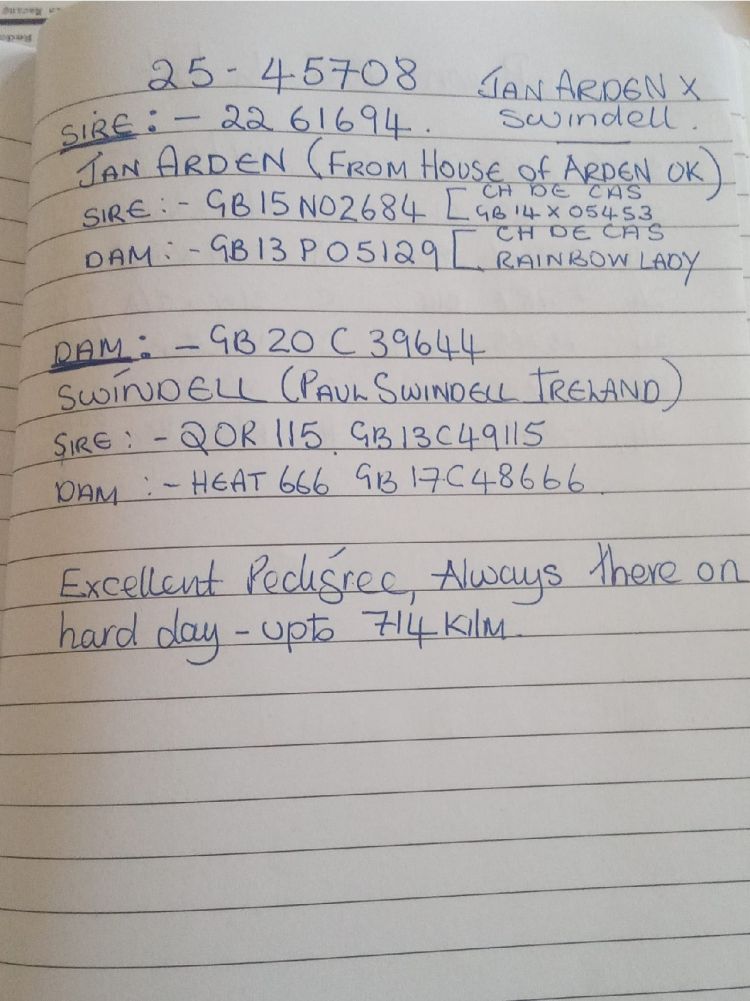 25-45708 JAN ARDEN X
Swindell.
SIRE:- 22 61694.
JAN ARDEN (FROM HOUSE of ARDEN OK)
SIRE:- GB15N02684 [ CH DE CAS
GB14X05453
DAM:- GB13P05129 [ CH DE CAS
RAINBOW LADY
DAM:- GB20C39644
SWINDELL (PAUL SWINDELL IRELAND)
SIRE:- QOR 115 GB13C49115
DAM:- HEAT 666 GB17C48666
Excellent Pedigree, Always there on
hard day - upto 714 KILM.